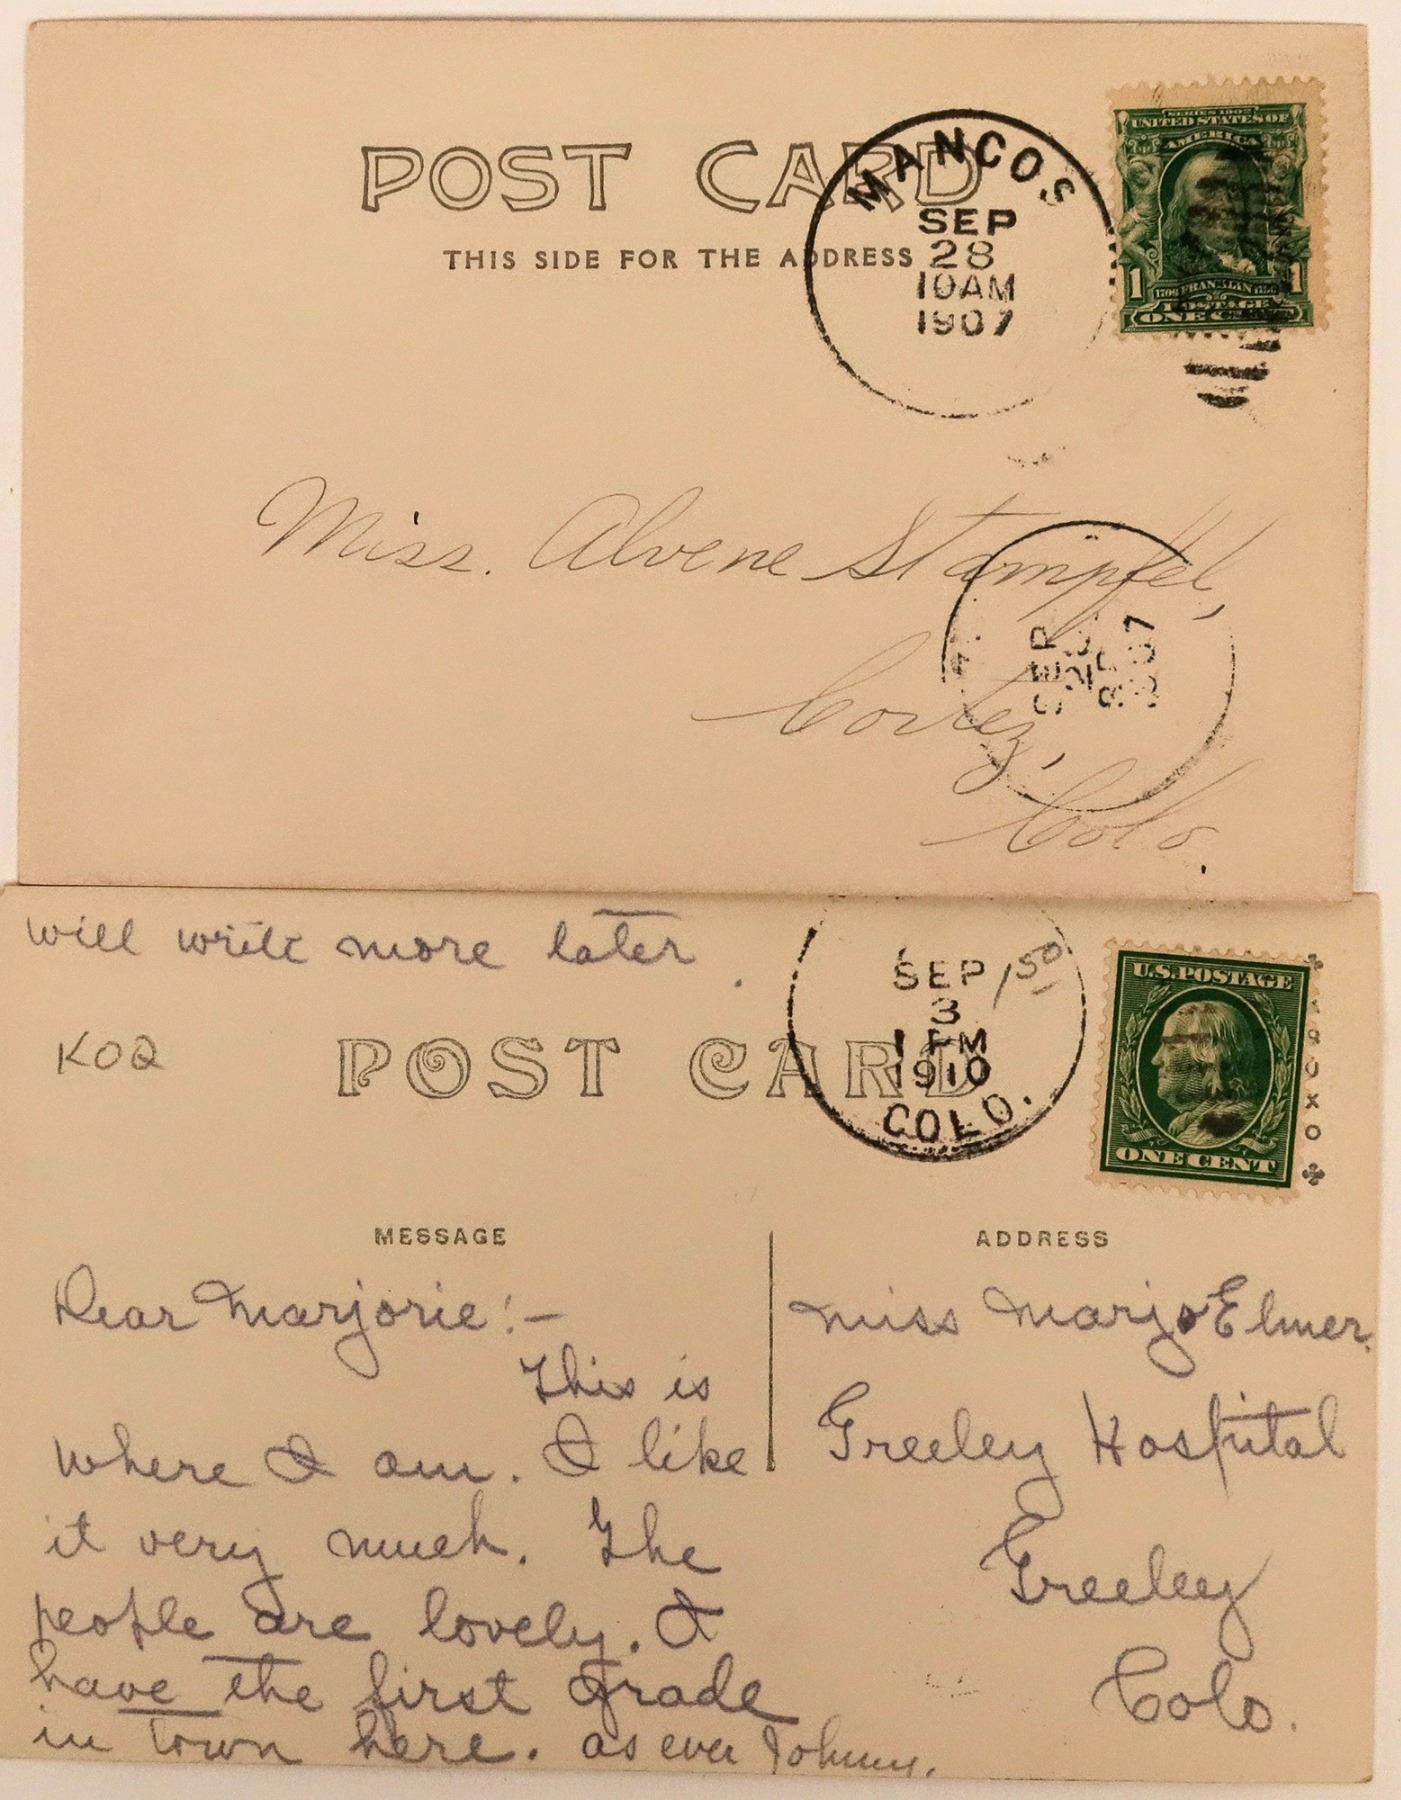 POST CARD
THIS SIDE FOR THE ADDRESS
MANCOS
SEP
28
10AM
1907
SERIES 1902
UNITED STATES OF
AMERICA
1 1
FRANKLIN
POSTAGE
ONE
Miss. Alvene Stampfel,
Cortez,
Colo.
will write more later.
KO2
POST CARD
SEP
3
1910
COLO.
150
U.S. POSTAGE
ONE CENT
AZO
XO
MESSAGE
ADDRESS
Dear Marjorie!-
This is
where I am. I like
it very much. The
people are lovely. I
have the first grade
in town here. as ever Johnny.
Miss Marjo Elmer.
Greeley Hospital
Greeley
Colo.